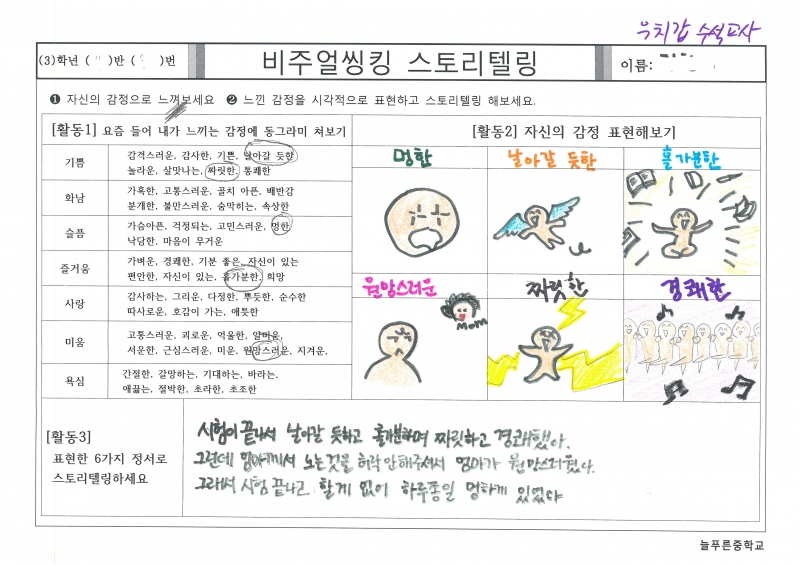 우치갑 수석교사
(3)학년 ( )반 ( )번
비주얼씽킹 스토리텔링
이름:
❶ 자신의 감정으로 느껴보세요 ❷ 느낀 감정을 시각적으로 표현하고 스토리텔링 해보세요.
[활동1] 요즘 들어 내가 느끼는 감정에 동그라미 쳐보기
기쁨
감격스러운, 감사한, 기쁜, 날아갈 듯한
놀라운, 살맛나는, 짜릿한, 통쾌한
화남
가혹한, 고통스러운, 골치 아픈, 배반감
분개한, 불만스러운, 숨막히는, 속상한
슬픔
가슴아픈, 걱정되는, 고민스러운, 멍한
낙담한, 마음이 무거운
즐거움
가벼운, 경쾌한, 기분 좋은, 자신이 있는
편안한, 자신이 있는, 홀가분한, 희망
사랑
감사하는, 그리운, 다정한, 뿌듯한, 순수한
따사로운, 호감이 가는, 애틋한
미움
고통스러운, 괴로운, 억울한, 얄미운,
서운한, 근심스러운, 미운, 원망스러운, 지겨운,
욕심
간절한, 갈망하는, 기대하는, 바라는,
애끓는, 절박한, 초라한, 초조한
[활동2] 자신의 감정 표현해보기
멍한
날아갈 듯한
홀가분한
원망스러운
짜릿한
경쾌한
Mom
[활동3]
표현한 6가지 정서로
스토리텔링하세요
시험이 끝나서 날아갈 듯하고 홀가분하며 짜릿하고 경쾌했다.
그런데 엄마께서 노는것을 허락 안해주셔서 엄마가 원망스러웠다.
그래서 시험 끝나고 할게 없이 하루종일 멍하게 있었다
늘푸른중학교